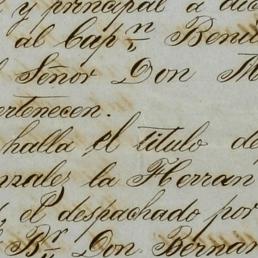 y principal a
al Cap.n Beni
Señor Don M
ertenecen.
halla el titulo de
nzales la Herran
el despachado por
Br Don Bernar